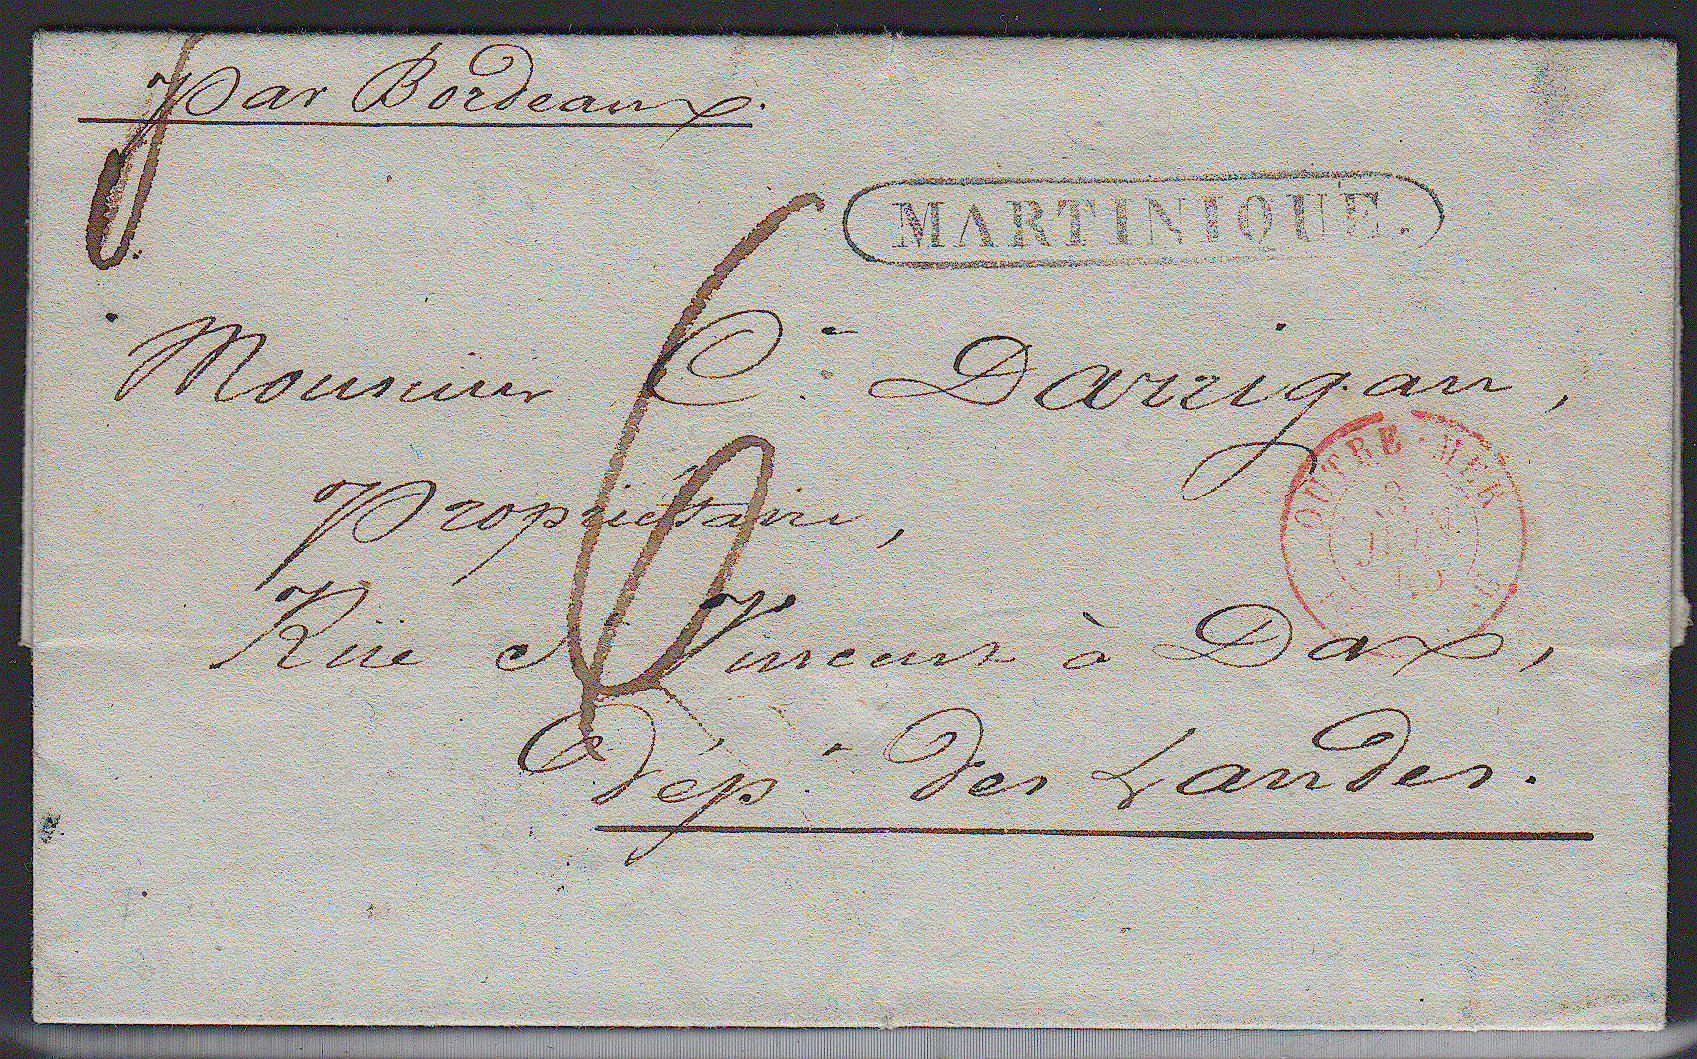 par Bordeaux.
MARTINIQUE.
Monsieur C. Darrigan,
OUTRE-MER
18
propriétaire,
6
Rüe St Vincent à Dax,
dép. des Landes.